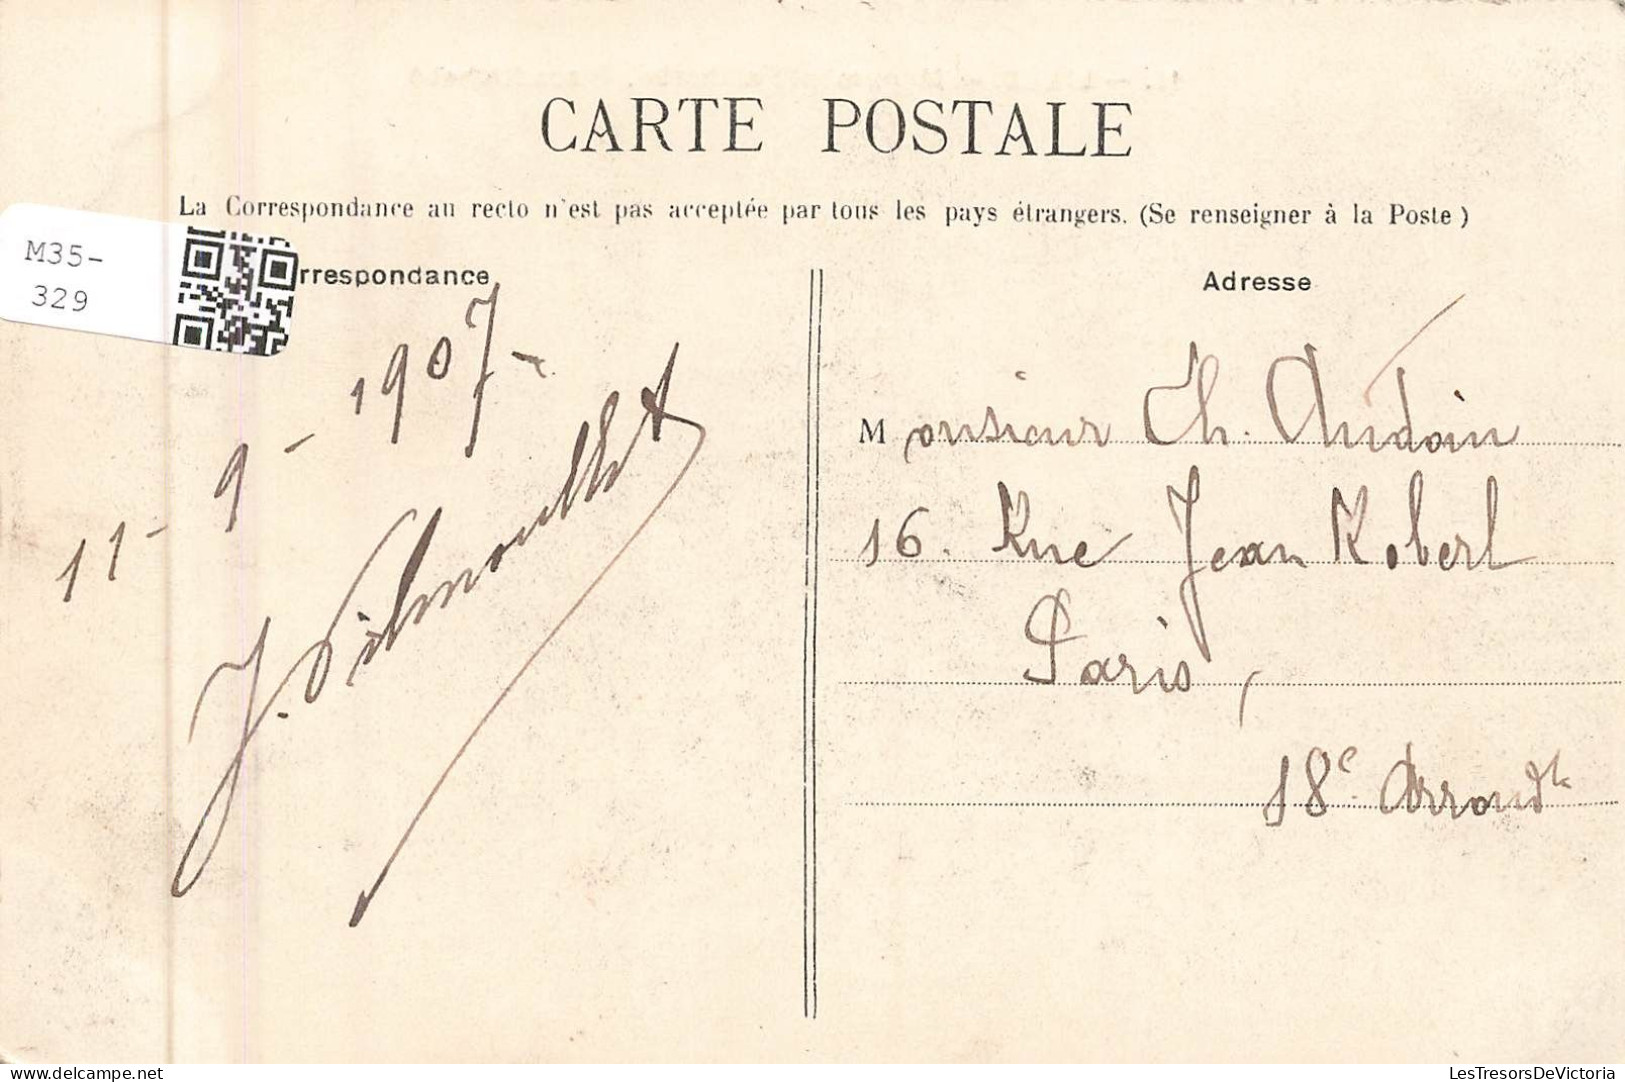 CARTE POSTALE
La Correspondance au recto n'est pas acceptée par tous les pays étrangers. (Se renseigner à la Poste)
M35-
329
rrespondance
Adresse
11 - 9 - 1907 -
J.
Monsieur Ch. Audoin
16. Rue Jean Robert
Paris,
18e Arrondt
LesTresorsDeVictoria